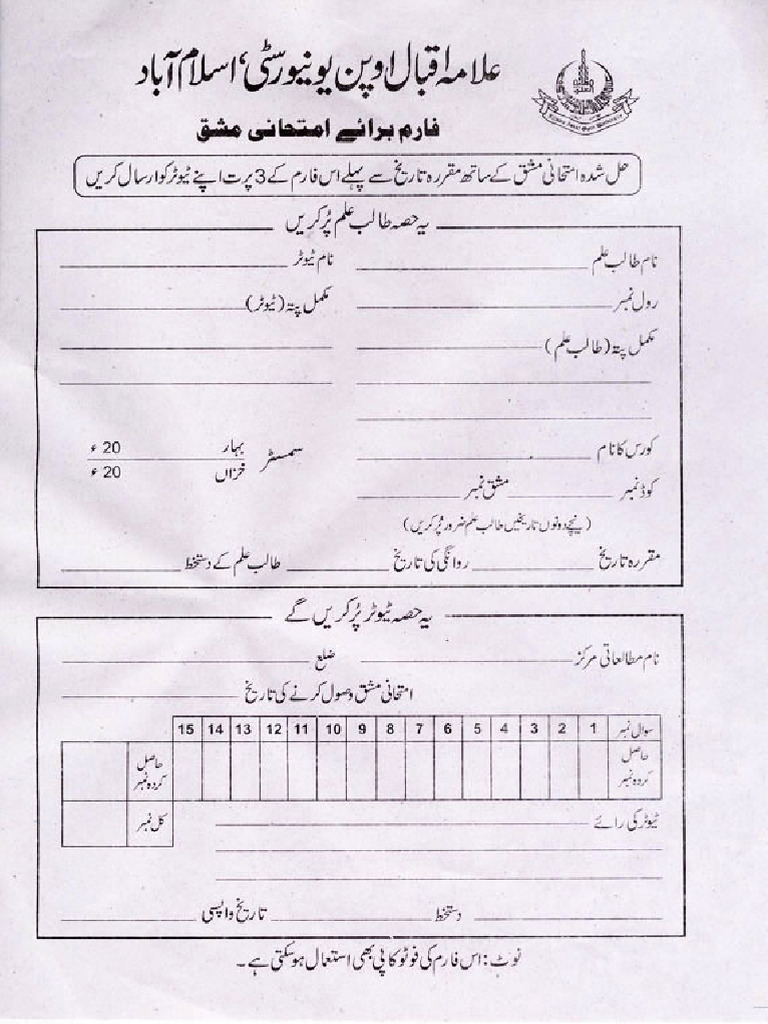 علامہ اقبال اوپن یونیورسٹی، اسلام آباد
فارم برائے امتحانی مشق
حل شدہ امتحانی مشق کے ساتھ مقررہ تاریخ سے پہلے اس فارم کے 3 پرت اپنے ٹیوٹر کو ارسال کریں
یہ حصہ طالب علم پُر کریں
نام طالب علم نام ٹیوٹر
رول نمبر مکمل پتہ (ٹیوٹر)
مکمل پتہ (طالب علم)
کورس کا نام سمسٹر بہار 20ء
خزاں 20ء
کوڈ نمبر مشق نمبر
(نیچے دونوں تاریخیں طالب علم ضرور پُر کریں)
مقررہ تاریخ روانگی کی تاریخ طالب علم کے دستخط
یہ حصہ ٹیوٹر پُر کریں گے
نام مطالعاتی مرکز ضلع
امتحانی مشق وصول کرنے کی تاریخ
سوال نمبر 1 2 3 4 5 6 7 8 9 10 11 12 13 14 15
حاصل کردہ نمبر حاصل کردہ نمبر
ٹیوٹر کی رائے کل نمبر
دستخط تاریخ واپسی
نوٹ: اس فارم کی فوٹو کاپی بھی استعمال ہو سکتی ہے۔